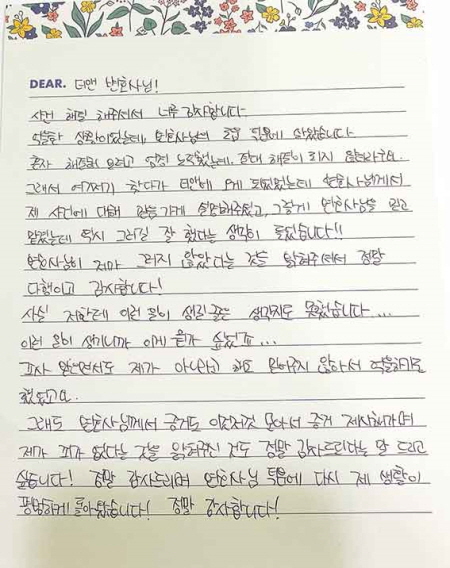 DEAR. 더앤 변호사님!
사건 해결 해주셔서 너무 감사합니다.
억울한 상황이었는데, 변호사님의 도움 덕분에 살았습니다.
혼자 해결해 보려고 엄청 노력했는데, 절대 해결이 되지 않더라구요.
그래서 어쩌지 하다가 더앤에 오게 되었었는데 변호사님께서
제 사건에 대해 믿음가게 설명해주셨고, 그렇게 변호사님을 믿고
맡겼는데 역시 그러길 잘 했다는 생각이 들었습니다!!
변호사님이 제가 그러지 않았다는 것을 밝혀주셔서 정말
다행이고 감사합니다!
사실 저한테 이런 일이 생길줄은 생각지도 못했습니다...
이런 일이 생기니까 이게 뭔가 싶었죠...
조사 받으면서도 제가 아니라고 해도 믿어주지 않아서 억울하기도
했었고요.
그래도 변호사님께서 증거도 이것저것 모아서 증거 제시해가며
제가 죄가 없다는 것을 밝혀주신 것도 정말 감사드리다는 말 드리고
싶습니다! 정말 감사드리며 변호사님 덕분에 다시 제 생활이
평범하게 돌아왔습니다! 정말 감사합니다!